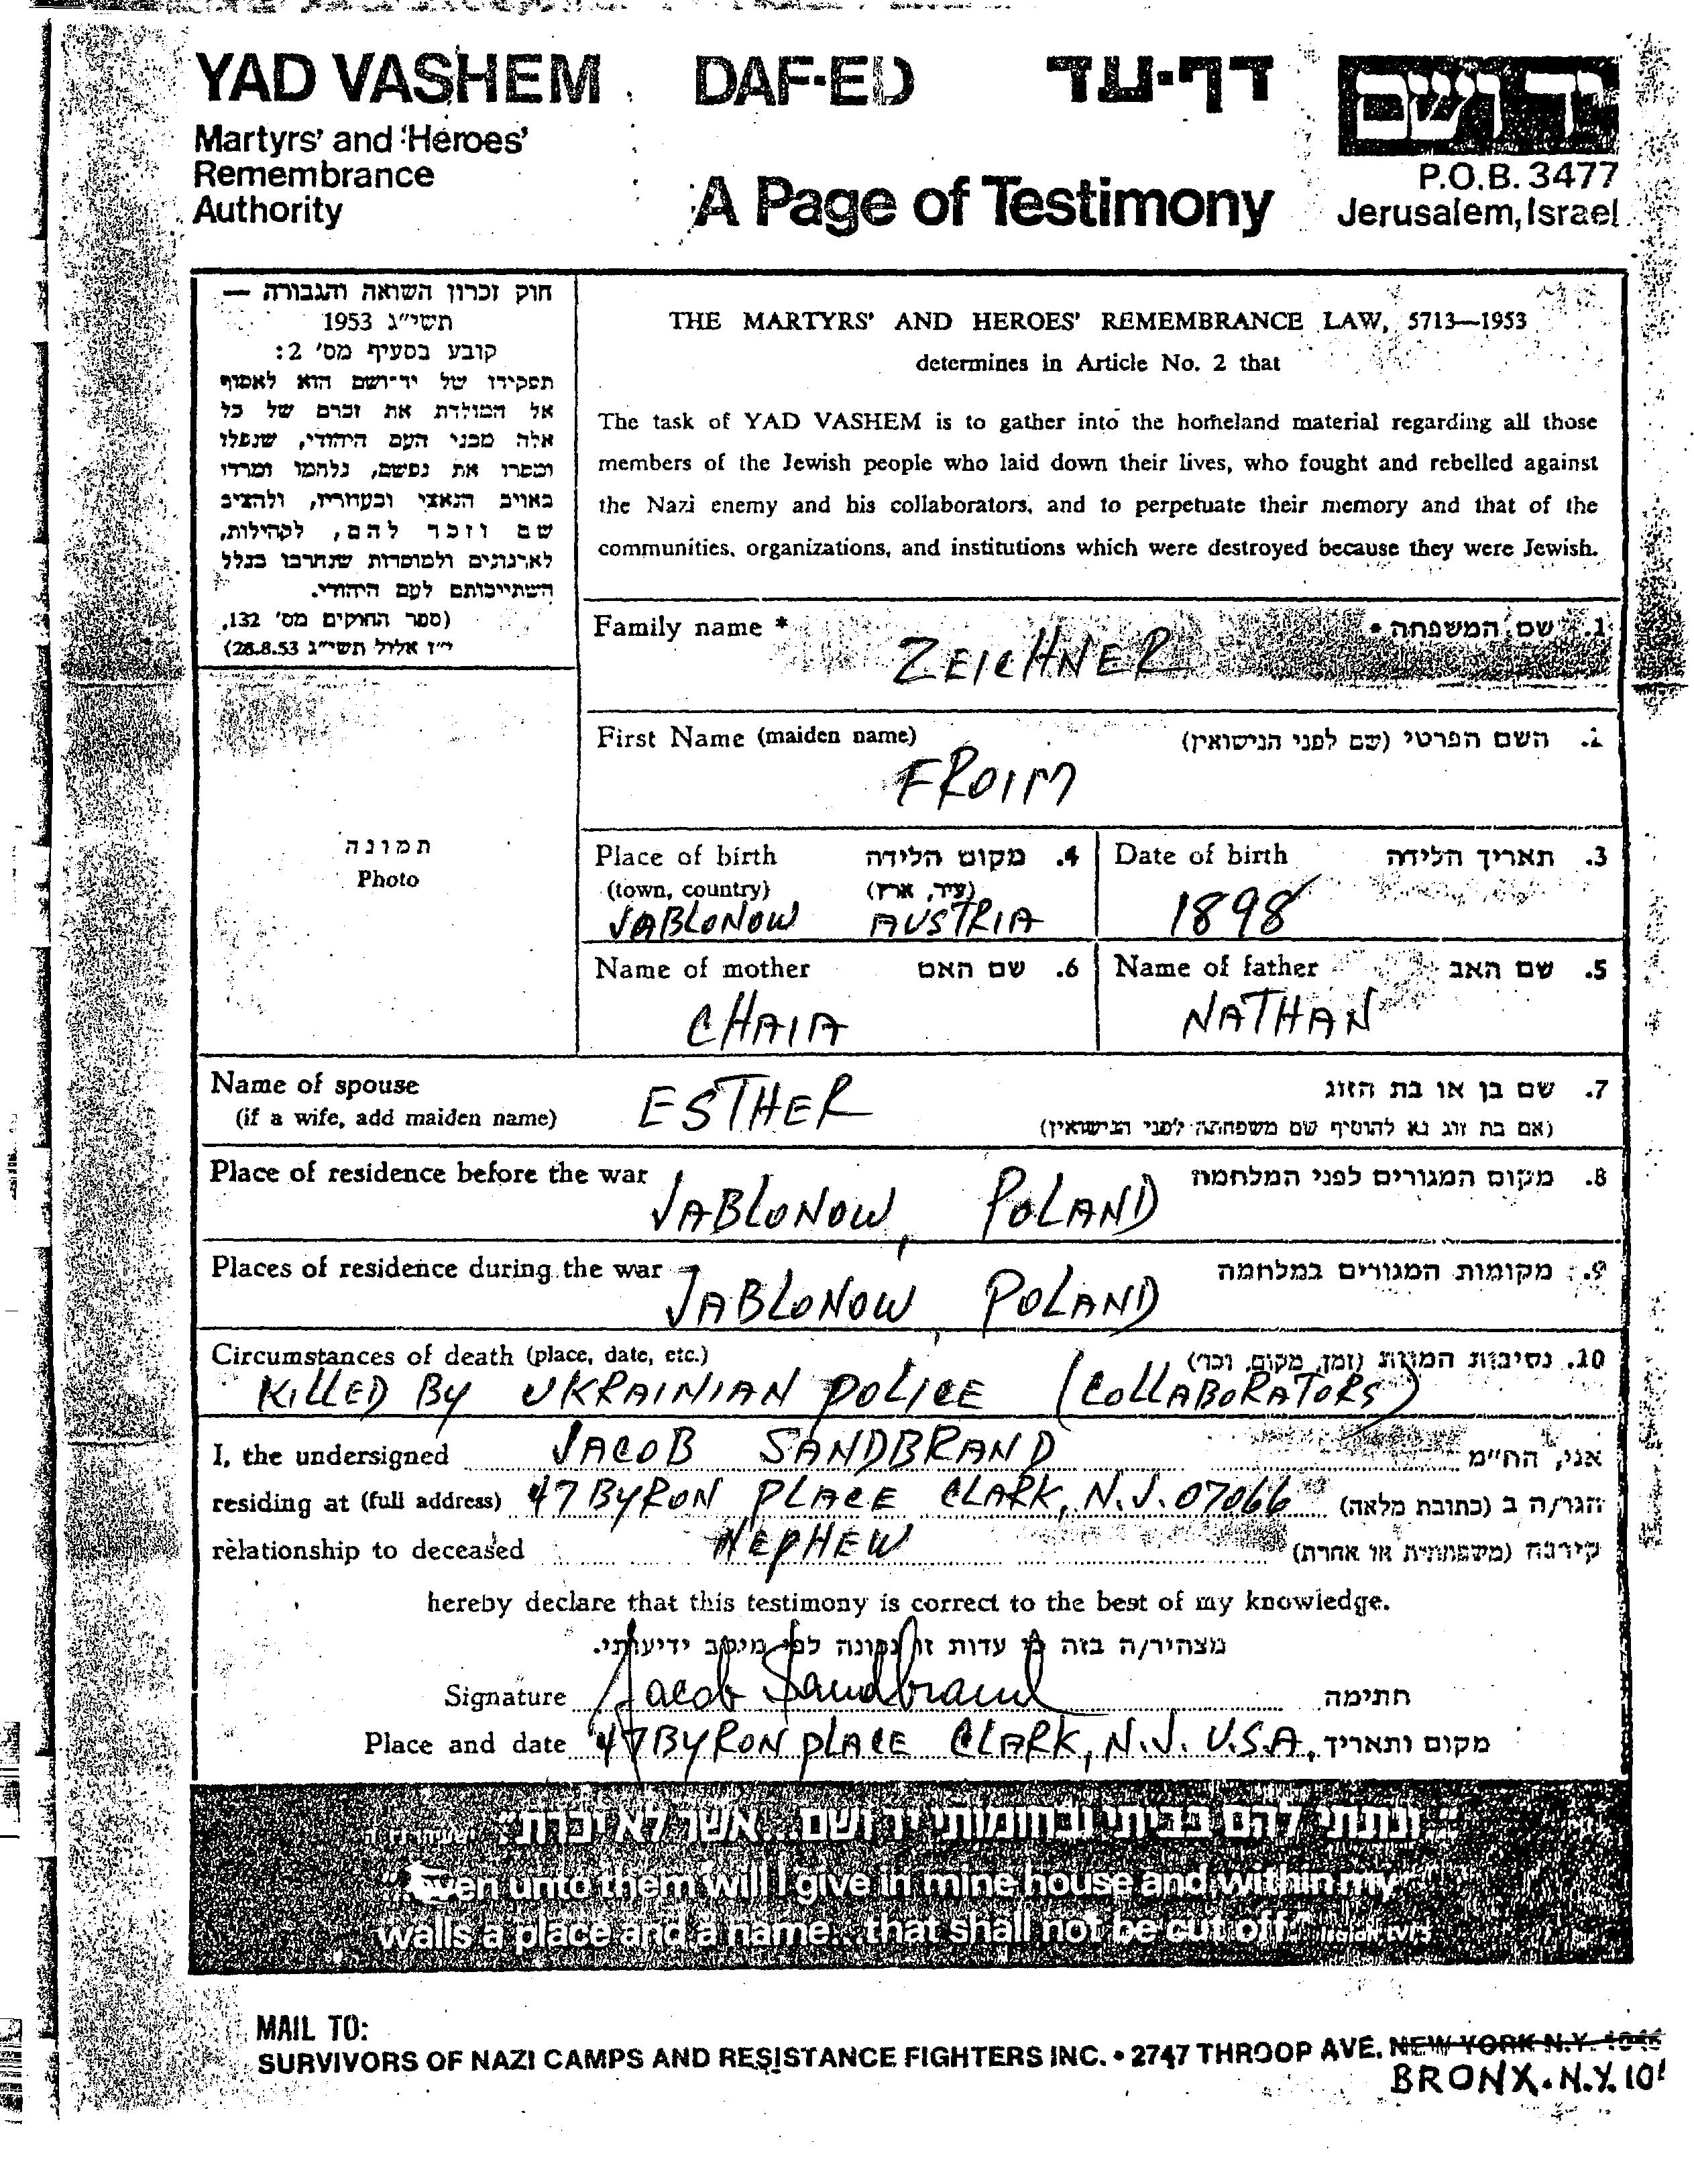 YAD VASHEM DAF-ED דף-עד ידושם
Martyrs' and Heroes'
Remembrance
Authority
A Page of Testimony
P.O.B. 3477
Jerusalem, Israel
חוק זכרון השואה והגבורה —
תשי"ג 1953
קובע בסעיף מס' 2:
תפקידו של יד-ושם הוא לאסוף
אל המולדת את זכרם של כל
אלה מבני העם היהודי, שנפלו
ומסרו את נפשם, נלחמו ומרדו
באויב הנאצי ובעוזריו, ולהציב
שם וזכר להם, לקהילות,
לארגונים ולמוסדות שנחרבו בגלל
השתייכותם לעם היהודי.
(ספר החוקים מס' 132,
י"ז אלול תשי"ג 28.8.53)
THE MARTYRS' AND HEROES' REMEMBRANCE LAW, 5713—1953
determines in Article No. 2 that
The task of YAD VASHEM is to gather into the homeland material regarding all those
members of the Jewish people who laid down their lives, who fought and rebelled against
the Nazi enemy and his collaborators, and to perpetuate their memory and that of the
communities, organizations, and institutions which were destroyed because they were Jewish.
Family name * 1. שם המשפחה *
ZEICHNER
First Name (maiden name) 2. השם הפרטי (שם לפני הנישואין)
FROIM
תמונה
Photo
Place of birth 4. מקום הלידה
(town, country) (עיר, ארץ)
JABLONOW AUSTRIA
Date of birth 3. תאריך הלידה
1898
Name of mother 6. שם האם
CHAIA
Name of father 5. שם האב
NATHAN
Name of spouse ESTHER 7. שם בן או בת הזוג
(if a wife, add maiden name) (אם בת זוג נא להוסיף שם משפחתה לפני הנישואין)
Place of residence before the war 8. מקום המגורים לפני המלחמה
JABLONOW, POLAND
Places of residence during the war 9. מקומות המגורים במלחמה
JABLONOW, POLAND
Circumstances of death (place, date, etc.) 10. נסיבות המוות (זמן, מקום, וכו')
KILLED BY UKRAINIAN POLICE (COLLABORATORS)
I, the undersigned JACOB SANDBRAND אני, הח"מ
residing at (full address) 47 BYRON PLACE CLARK, N.J. 07066 הגר/ה ב (כתובת מלאה)
relationship to deceased NEPHEW קירבה (משפחתית או אחרת)
hereby declare that this testimony is correct to the best of my knowledge.
מצהיר/ה בזה כי עדות זו נכונה לפי מיטב ידיעותי.
Signature Jacob Sandbrand חתימה
Place and date 47 BYRON PLACE CLARK, N.J. U.S.A. מקום ותאריך
"ונתתי להם בביתי ובחומותי יד ושם...אשר לא יכרת"
"...Even unto them will I give in mine house and within my
walls a place and a name...that shall not be cut off"
MAIL TO:
SURVIVORS OF NAZI CAMPS AND RESISTANCE FIGHTERS INC. • 2747 THROOP AVE. NEW YORK N.Y.
BRONX. N.Y. 10